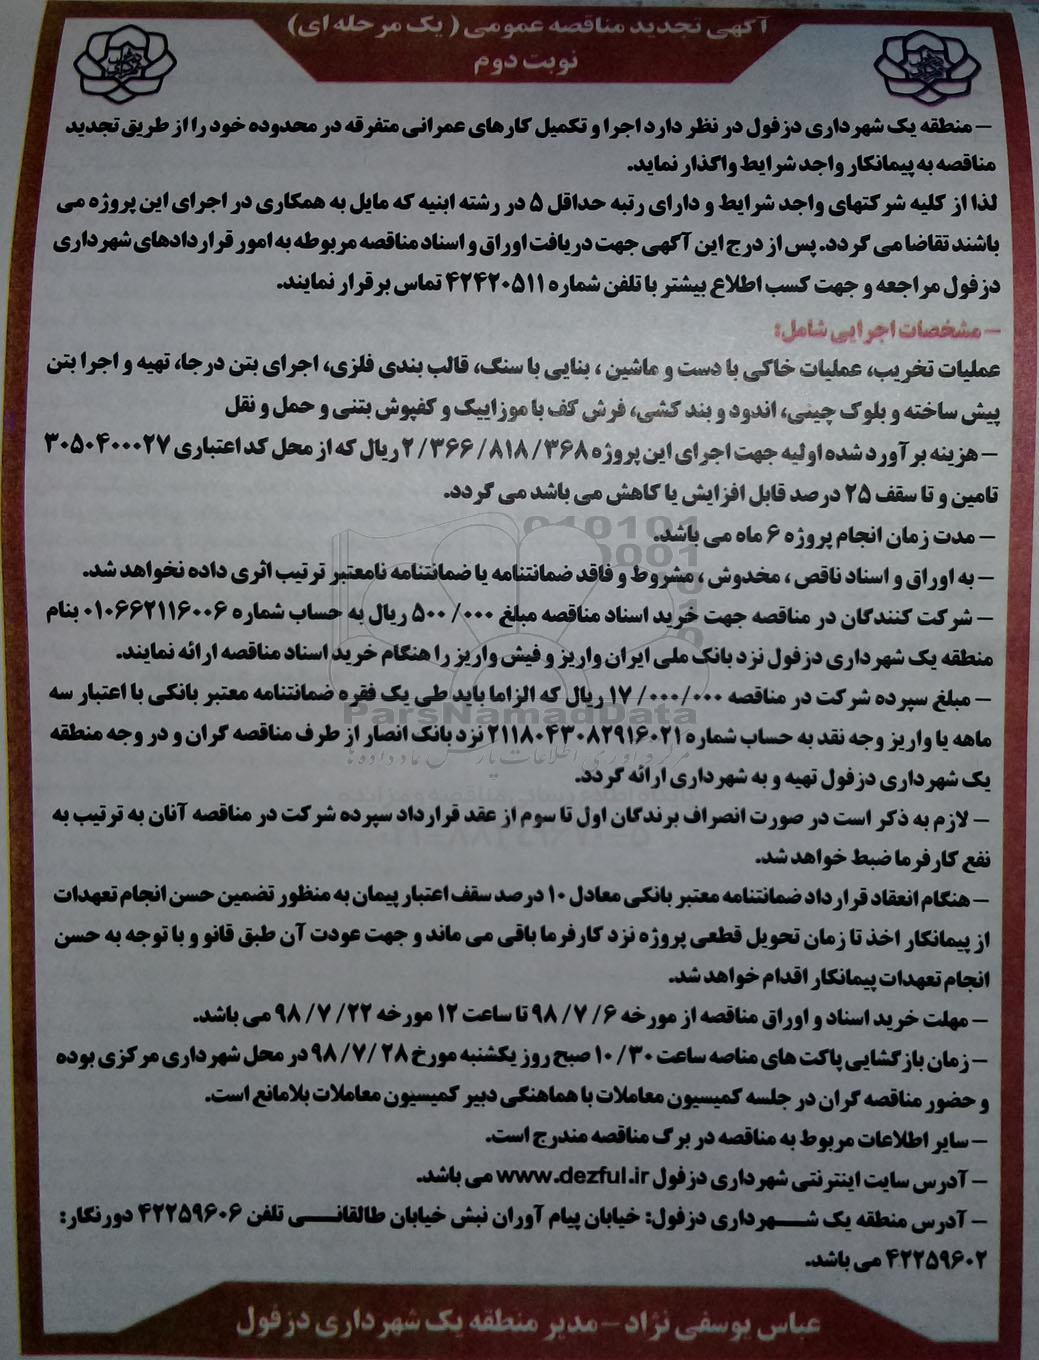 آگهی تجدید مناقصه عمومی ( یک مرحله ای)
نوبت دوم
– منطقه یک شهرداری دزفول در نظر دارد اجرا و تکمیل کارهای عمرانی متفرقه در محدوده خود را از طریق تجدید
مناقصه به پیمانکار واجد شرایط واگذار نماید.
لذا از کلیه شرکتهای واجد شرایط و دارای رتبه حداقل ۵ در رشته ابنیه که مایل به همکاری در اجرای این پروژه می
باشند تقاضا می گردد. پس از درج این آگهی جهت دریافت اوراق و اسناد مناقصه مربوطه به امور قراردادهای شهرداری
دزفول مراجعه و جهت کسب اطلاع بیشتر با تلفن شماره ۴۲۴۲۰۵۱۱ تماس برقرار نمایند.
– مشخصات اجرایی شامل:
عملیات تخریب، عملیات خاکی با دست و ماشین ، بنایی با سنگ، قالب بندی فلزی، اجرای بتن درجا، تهیه و اجرا بتن
پیش ساخته و بلوک چینی، اندود و بند کشی، فرش کف با موزاییک و کفپوش بتنی و حمل و نقل
– هزینه برآورد شده اولیه جهت اجرای این پروژه ۲/۳۶۶/۸۱۸/۳۶۸ ریال که از محل کد اعتباری ۳۰۵۰۴۰۰۰۲۷
تامین و تا سقف ۲۵ درصد قابل افزایش یا کاهش می باشد می گردد.
– مدت زمان انجام پروژه ۶ ماه می باشد.
– به اوراق و اسناد ناقص ، مخدوش ، مشروط و فاقد ضمانتنامه یا ضمانتنامه نامعتبر ترتیب اثری داده نخواهد شد.
– شرکت کنندگان در مناقصه جهت خرید اسناد مناقصه مبلغ ۵۰۰/۰۰۰ ریال به حساب شماره ۰۱۰۶۶۲۱۱۶۰۰۶ بنام
منطقه یک شهرداری دزفول نزد بانک ملی ایران واریز و فیش واریز را هنگام خرید اسناد مناقصه ارائه نمایند.
– مبلغ سپرده شرکت در مناقصه ۱۷/۰۰۰/۰۰۰ ریال که الزاما باید طی یک فقره ضمانتنامه معتبر بانکی با اعتبار سه
ParsNamadData
ماهه یا واریز وجه نقد به حساب شماره ۲۱۱۸۰۴۳۰۸۲۹۱۶۰۲۱ نزد بانک انصار از طرف مناقصه گران و در وجه منطقه
یک شهرداری دزفول تهیه و به شهرداری ارائه گردد.
– لازم به ذکر است در صورت انصراف برندگان اول تا سوم از عقد قرارداد سپرده شرکت در مناقصه آنان به ترتیب به
نفع کارفرما ضبط خواهد شد.
– هنگام انعقاد قرارداد ضمانتنامه معتبر بانکی معادل ۱۰ درصد سقف اعتبار پیمان به منظور تضمین حسن انجام تعهدات
از پیمانکار اخذ تا زمان تحویل قطعی پروژه نزد کارفرما باقی می ماند و جهت عودت آن طبق قانو و با توجه به حسن
انجام تعهدات پیمانکار اقدام خواهد شد.
– مهلت خرید اسناد و اوراق مناقصه از مورخه ۹۸/۷/۶ تا ساعت ۱۲ مورخه ۹۸/۷/۲۲ می باشد.
– زمان بازگشایی پاکت های مناصه ساعت ۱۰/۳۰ صبح روز یکشنبه مورخ ۹۸/۷/۲۸ در محل شهرداری مرکزی بوده
و حضور مناقصه گران در جلسه کمیسیون معاملات با هماهنگی دبیر کمیسیون معاملات بلامانع است.
– سایر اطلاعات مربوط به مناقصه در برگ مناقصه مندرج است.
– آدرس سایت اینترنتی شهرداری دزفول www.dezful.ir می باشد.
– آدرس منطقه یک شهرداری دزفول: خیابان پیام آوران نبش خیابان طالقانی تلفن ۴۲۲۵۹۶۰۶ دورنگار:
۴۲۲۵۹۶۰۲ می باشد.
عباس یوسفی نژاد – مدیر منطقه یک شهرداری دزفول